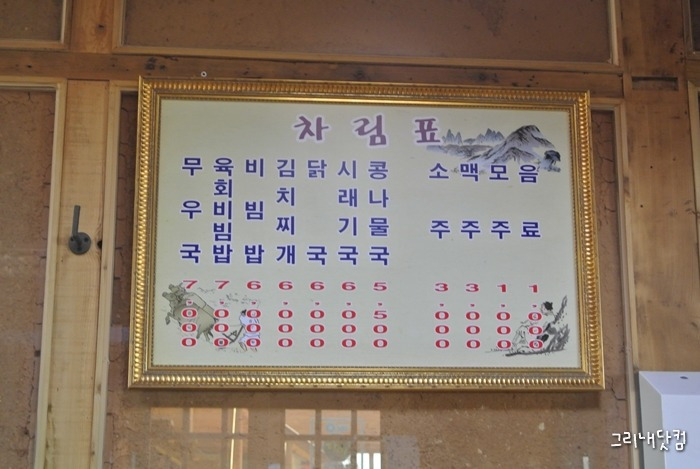 차림표
무우국 7.000
육회비빔밥 7.000
비빔밥 6.000
김치찌개 6.000
닭국 6.000
시래기국 6.000
콩나물국 5.500
소주 3.000
맥주 3.000
모주 1.000
음료 1.000
그리내닷컴